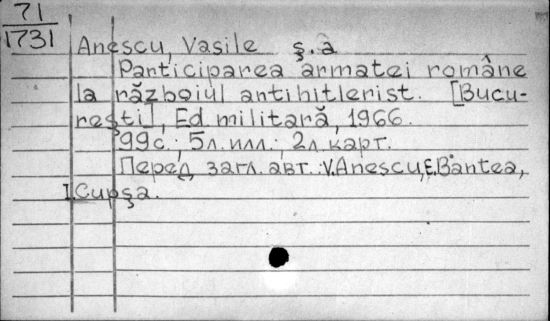 71
1731
Anescu, Vasile ş.a
Participarea armatei române
la războiul antihitlerist. [Bucu-
reşti], Ed. militară, 1966.
99с.; 5л.илл.; 2л.карт.
Перед загл. авт.: V.Anescu, E.Bantea,
I.Cupşa.